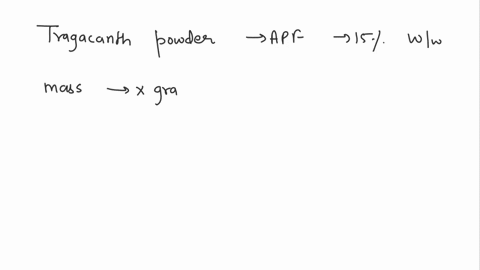 Tragacanth powder → APF → 15% w/w
mass → x gra